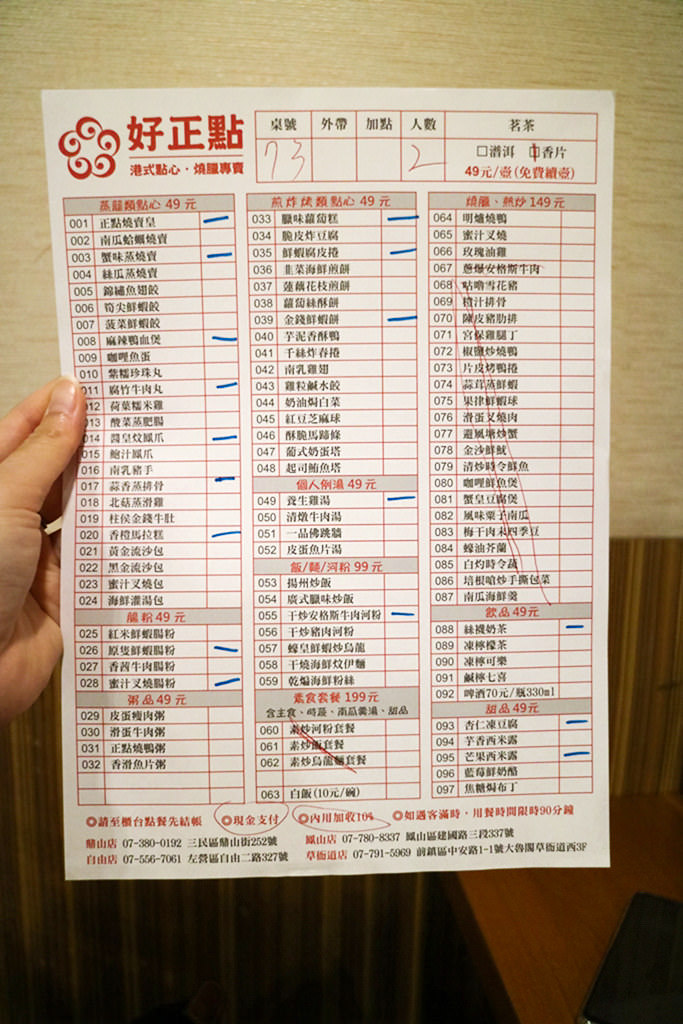 好正點
港式點心・燒臘專賣
桌號 外帶 加點 人數 茗茶
73 2 □普洱 □香片
49元/壺(免費續壺)
蒸籠類點心 49 元
001 正點燒賣皇
002 南瓜蛤蠣燒賣
003 蟹味蒸燒賣
004 絲瓜蒸燒賣
005 錦繡魚翅餃
006 筍尖鮮蝦餃
007 菠菜鮮蝦餃
008 麻辣鴨血煲
009 咖哩魚蛋
010 紫糯珍珠丸
011 腐竹牛肉丸
012 荷葉糯米雞
013 酸菜蒸肥腸
014 醬皇炆鳳爪
015 鮑汁鳳爪
016 南乳豬手
017 蒜香蒸排骨
018 北菇蒸滑雞
019 柱侯金錢牛肚
020 香橙馬拉糕
021 黃金流沙包
022 黑金流沙包
023 蜜汁叉燒包
024 海鮮灌湯包
腸粉 49元
025 紅米鮮蝦腸粉
026 原隻鮮蝦腸粉
027 香茜牛肉腸粉
028 蜜汁叉燒腸粉
粥品 49元
029 皮蛋瘦肉粥
030 滑蛋牛肉粥
031 正點燒鴨粥
032 香滑魚片粥
煎炸烤類點心 49 元
033 臘味蘿蔔糕
034 脆皮炸豆腐
035 鮮蝦腐皮捲
036 韭菜海鮮煎餅
037 蓮藕花枝煎餅
038 蘿蔔絲酥餅
039 金錢鮮蝦餅
040 芋泥香酥鴨
041 千絲炸春捲
042 南乳雞翅
043 雞粒鹹水餃
044 奶油焗白菜
045 紅豆芝麻球
046 酥脆馬蹄條
047 葡式奶蛋塔
048 起司鮪魚塔
個人例湯 49 元
049 養生雞湯
050 清燉牛肉湯
051 一品佛跳牆
052 皮蛋魚片湯
飯/麵/河粉 99 元
053 揚州炒飯
054 廣式臘味炒飯
055 干炒安格斯牛肉河粉
056 干炒豬肉河粉
057 蠔皇鮮蝦炒烏龍
058 干燒海鮮炆伊麵
059 乾煸海鮮粉絲
素食套餐 199元
含主食、時蔬、南瓜羹湯、甜品
060 素炒河粉套餐
061 素炒飯套餐
062 素炒烏龍麵套餐
063 白飯(10元/碗)
燒臘、熱炒 149 元
064 明爐燒鴨
065 蜜汁叉燒
066 玫瑰油雞
067 蔥爆安格斯牛肉
068 咕嚕雪花豬
069 橙汁排骨
070 陳皮豬肋排
071 宮保雞腿丁
072 椒鹽炒燒鴨
073 片皮烤鴨捲
074 蒜茸蒸鮮蝦
075 果律鮮蝦球
076 滑蛋叉燒肉
077 避風塘炒蟹
078 金沙鮮魷
079 清炒時令鮮魚
080 咖哩鮮魚煲
081 蟹皇豆腐煲
082 風味栗子南瓜
083 梅干肉末四季豆
084 蠔油芥蘭
085 白灼時令蔬
086 培根嗆炒手撕包菜
087 南瓜海鮮羹
飲品 49元
088 絲襪奶茶
089 凍檸檬茶
090 凍檸可樂
091 鹹檸七喜
092 啤酒70元/瓶330ml
甜品 49元
093 杏仁凍豆腐
094 芋香西米露
095 芒果西米露
096 藍莓鮮奶酪
097 焦糖焗布丁
◎請至櫃台點餐先結帳 ◎現金支付 ◎內用加收10% ◎如遇客滿時，用餐時間限時90分鐘
鼎山店 07-380-0192 三民區鼎山街252號 鳳山店 07-780-8337 鳳山區建國路三段337號
自由店 07-556-7061 左營區自由二路327號 草衙道店 07-791-5969 前鎮區中安路1-1號大魯閣草衙道西3F